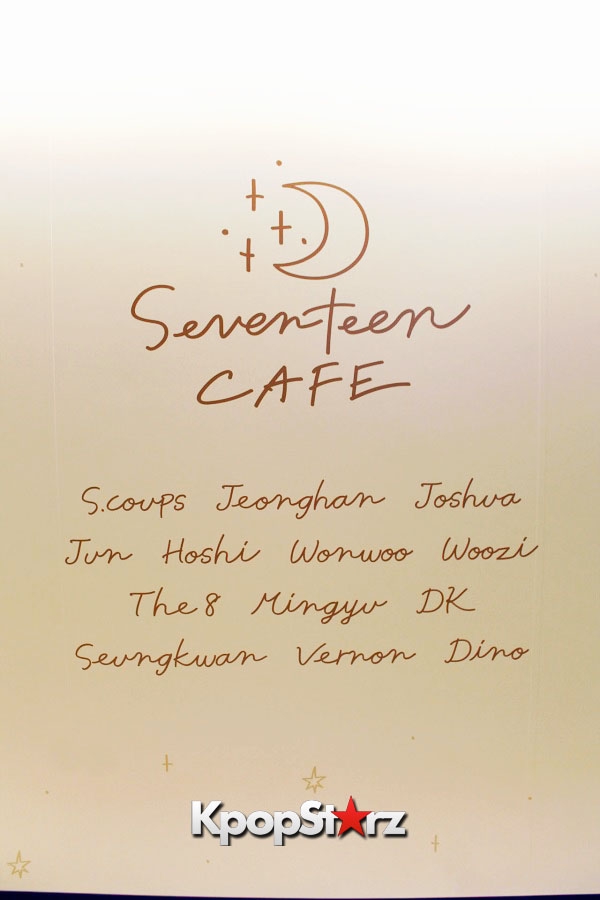 Seventeen
CAFE
S.coups Jeonghan Joshua
Jun Hoshi Wonwoo Woozi
The8 Mingyu DK
Seungkwan Vernon Dino
KpopStarz